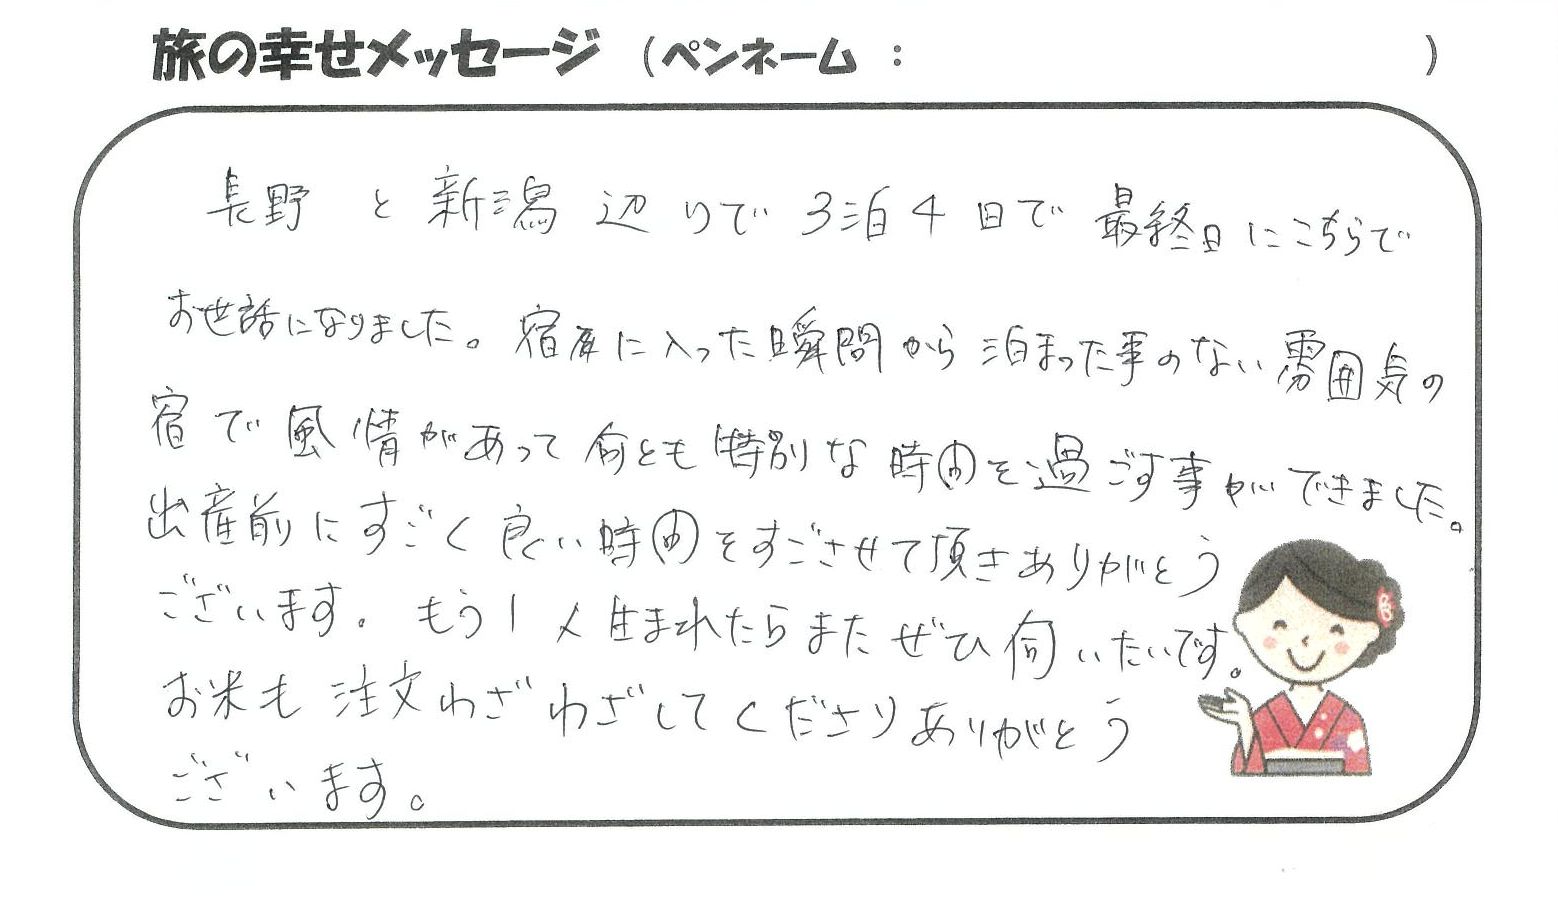 旅の幸せメッセージ (ペンネーム : )
長野と新潟辺りで3泊4日で最終日にこちらで
お世話になりました。宿屋に入った瞬間から泊まった事のない雰囲気の
宿で風情があって何とも特別な時間を過ごす事ができました。
出産前にすごく良い時間をすごさせて頂きありがとう
ございます。もう1人生まれたらまたぜひ伺いたいです。
お米も注文わざわざしてくださりありがとう
ございます。